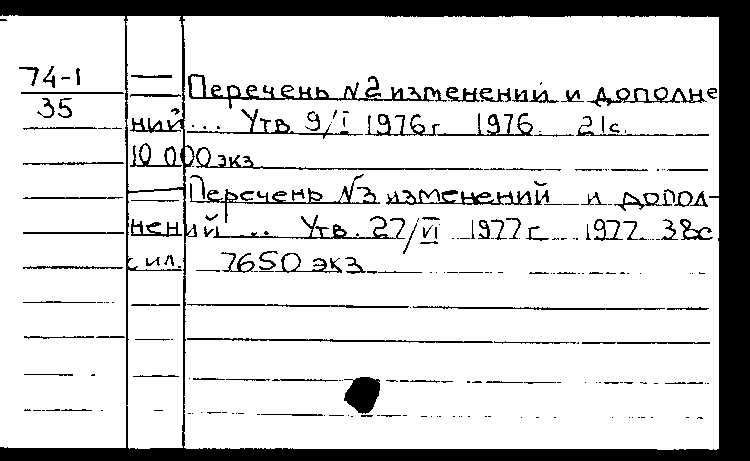 74-1 — Перечень №2 изменений и дополне
35
ний... Утв. 9/I 1976г 1976. 21с.
10 000 экз
— Перечень №3 изменений и допол-
нений ... Утв. 27/VI 1977г. 1977. 38с
с ил. 7650 экз